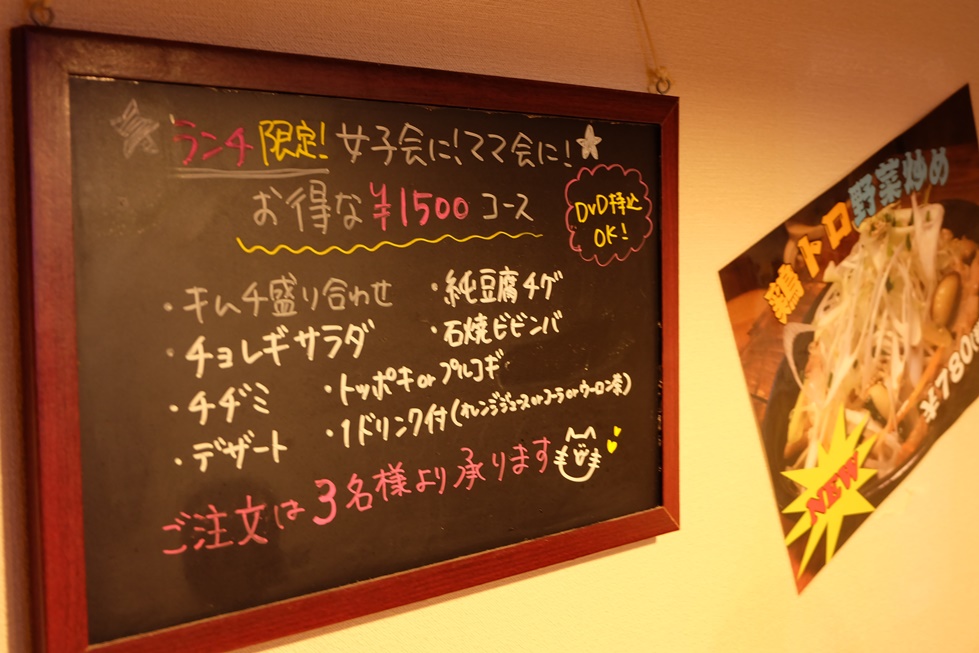 ランチ限定!女子会に!ママ会に!
お得な¥1500コース
DVD持込
OK!
・キムチ盛り合わせ
・純豆腐チゲ
・チョレギサラダ
・石焼ビビンバ
・チヂミ
・トッポキorプルコギ
・デザート
・1ドリンク付(オレンジジュースorコーラorウーロン茶)
ご注文は3名様より承ります
鶏トロ野菜炒め
¥780
NEW